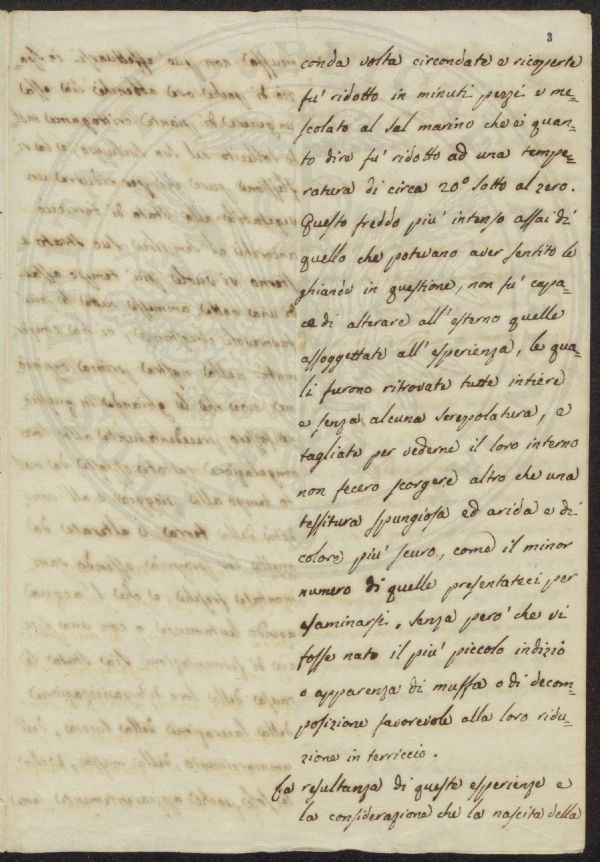 3
conda volta circondate e ricoperte
fu' ridotto in minuti pezzi e me=
scolato al sal marino che è quan=
to dire fu' ridotto ad una tempe=
ratura di circa 20° sotto al zero.
Questo freddo piu' intenso assai di
quello che potevano aver sentito le
ghiande in questione, non fu' capa=
ce di alterare all' esterno quelle
assoggettate all' esperienza, le qua=
li furono ritrovate tutte intiere
e senza alcuna screpolatura, e
tagliate per vederne il loro interno
non fecero scorgere altro che una
tessitura spungiosa ed arida e di
colore piu' scuro, come il minor
numero di quelle presentateci per
esaminarsi, senza pero' che vi
fosse nato il piu' piccolo indizio
o apparenza di muffa o di decom=
posizione favorevole alla loro ridu=
zione in terriccio.
La resultanza di queste esperienze e
la considerazione che la nascita della